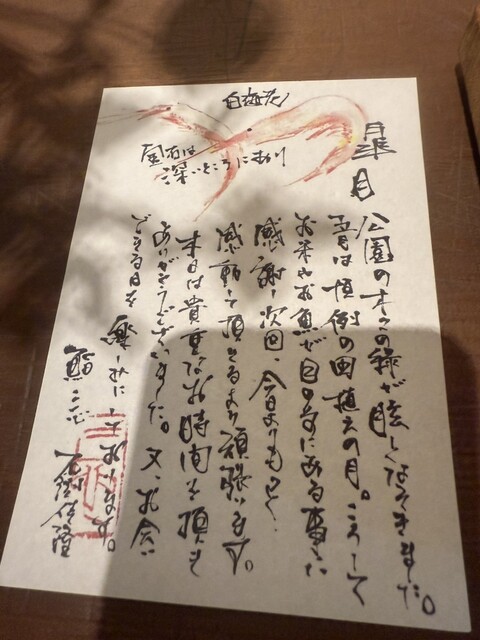 皐月
公園の木々の緑が眩しくなってきました。
五月は恒例の田植えの月。こうして
お米やお魚が目の前にある事に
感謝し次回、今日よりもっと
感動して頂けるよう頑張ります。
本日は貴重なお時間を頂き
ありがとうございました。又、お会い
できる日を楽しみにしております。
宝石は
深いところにあり